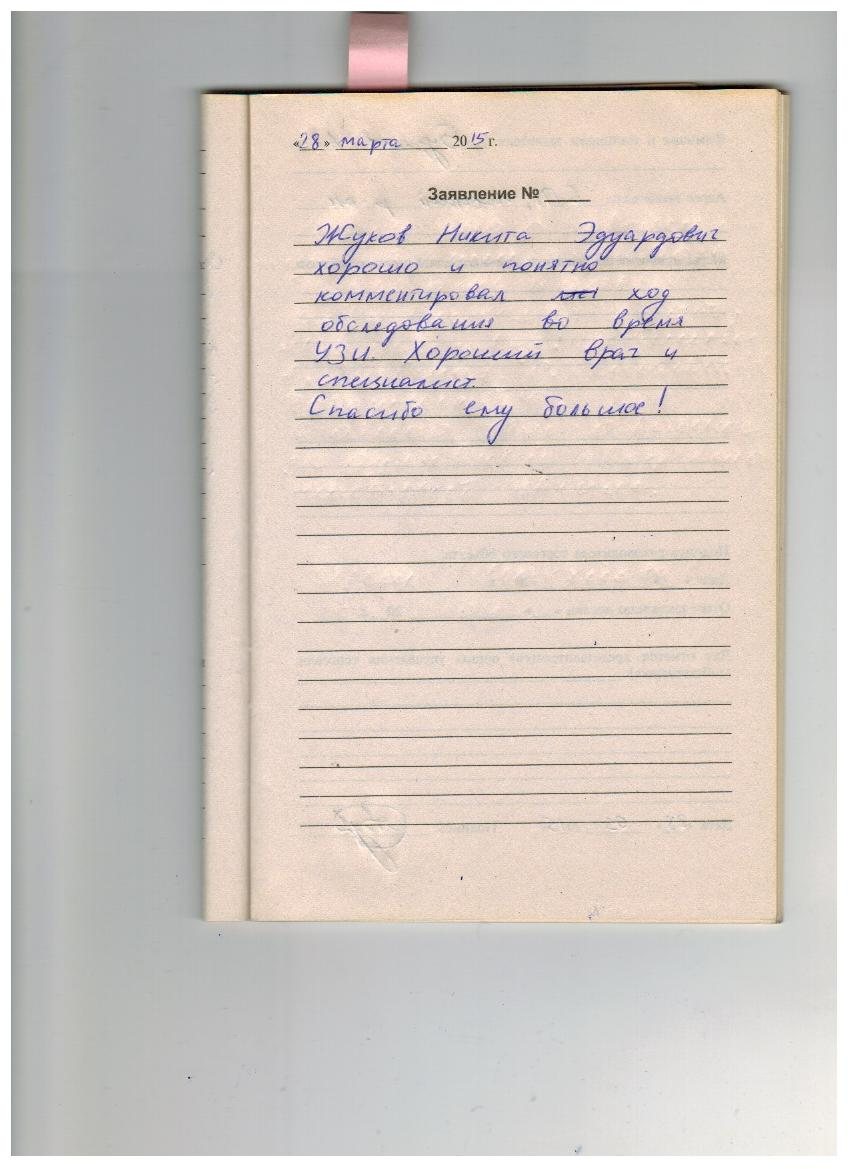 «28» марта 2015 г.
Заявление № _____
Жуков Никита Эдуардович
хорошо и понятно
комментировал ход
обследования во время
УЗИ. Хороший врач и
специалист.
Спасибо ему большое!